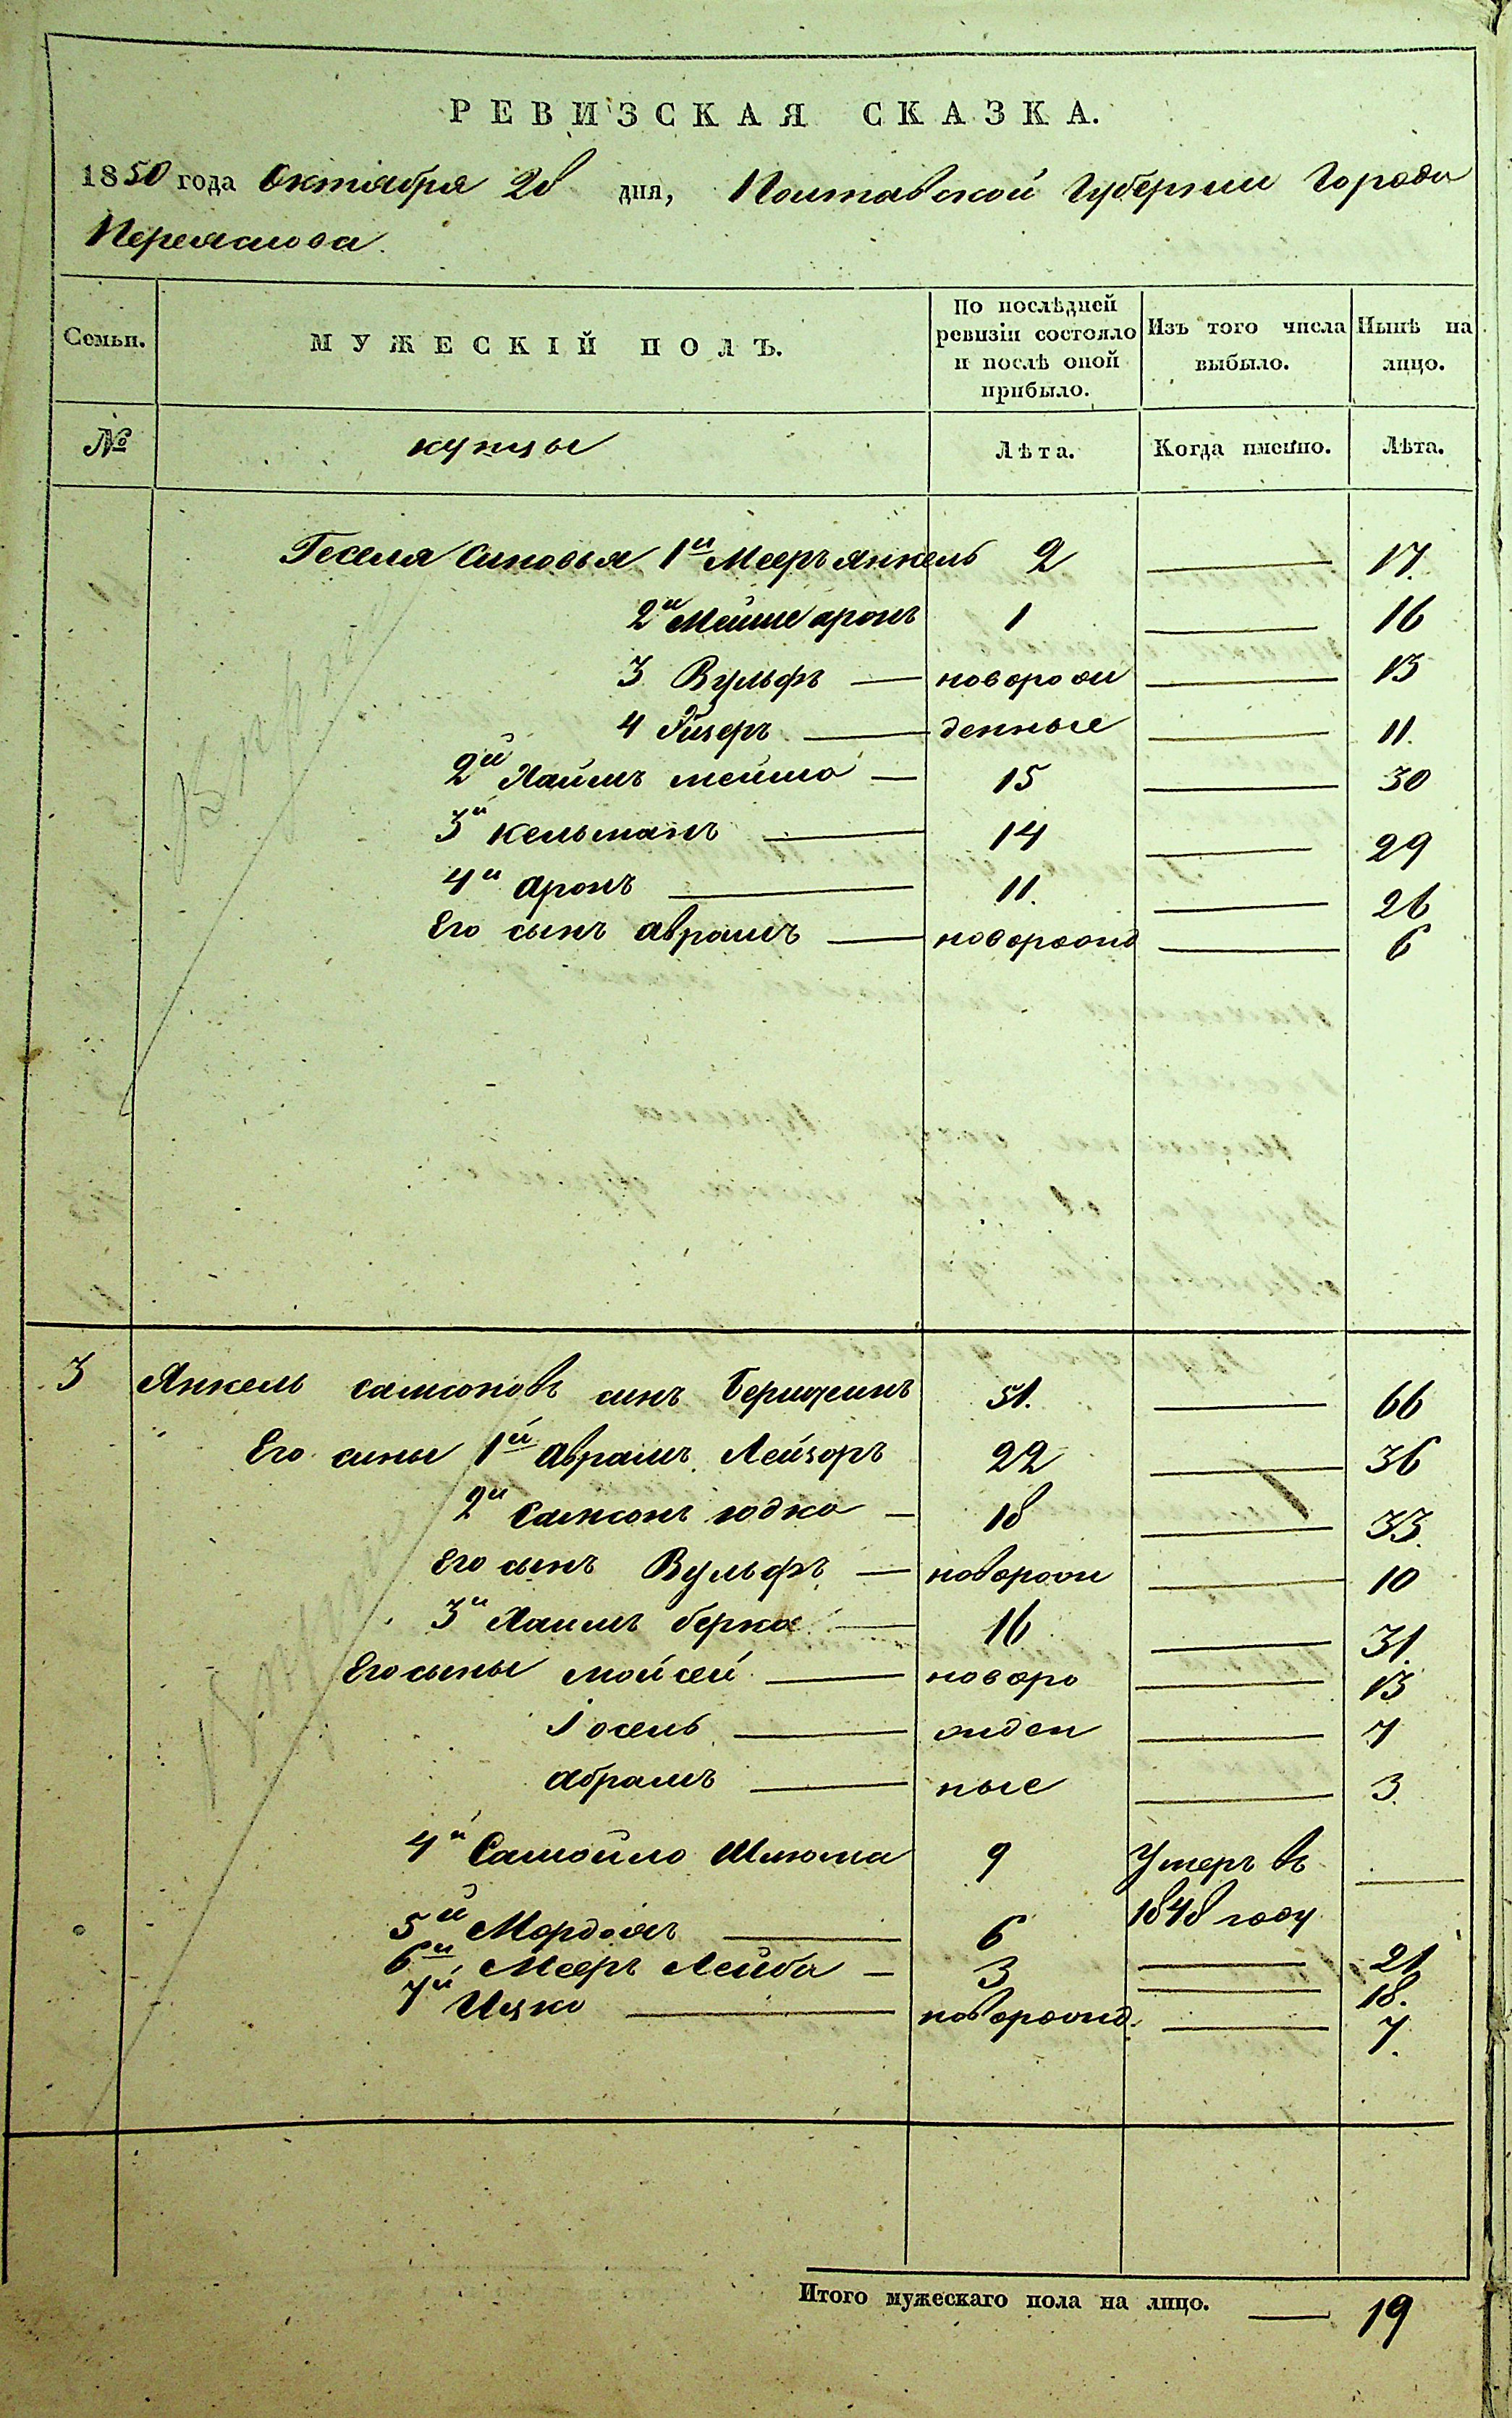 РЕВИЗСКАЯ СКАЗКА.
1850 года Октября 28 дня, Полтавской Губернии Города
Переяслова.
Семьи. МУЖЕСКІЙ ПОЛЪ. По послѣдней ревизіи состояло и послѣ оной прибыло. Изъ того числа выбыло. Нынѣ на лицо.
№ купцы Лѣта. Когда именно. Лѣта.
Геселя синовья 1й Мееръ янкель 2 — 17.
2й Мойше аронъ 1 — 16
3 Вульфъ — новорож — 13
4 — денные — 11.
2й Хаимъ мейша — 15 — 30
3й Кельманъ — 14 — 29
4й аронъ — 11. — 26
Его сынъ аврамъ — новорожд — 6
3 Янкель самсоновъ синъ 51. — 66
Его сины 1й аврамъ Лейзоръ 22 — 36
2й Самсонъ юдка — 18 — 33.
Его сынъ Вульфъ — новорож — 10
3й Хаимъ берка — 16 — 31.
Его сыны мойсей — новоро — 13
Іосель — жден — 7
абрамъ — ные — 3.
4й Самойло Шлюма 9 Умеръ въ —
1848 году
5й — 6 — 21
6й Мееръ Лейба — 3 — 18.
7й Ицко — новорожд. — 7.
Итого мужескаго пола на лицо. — 19